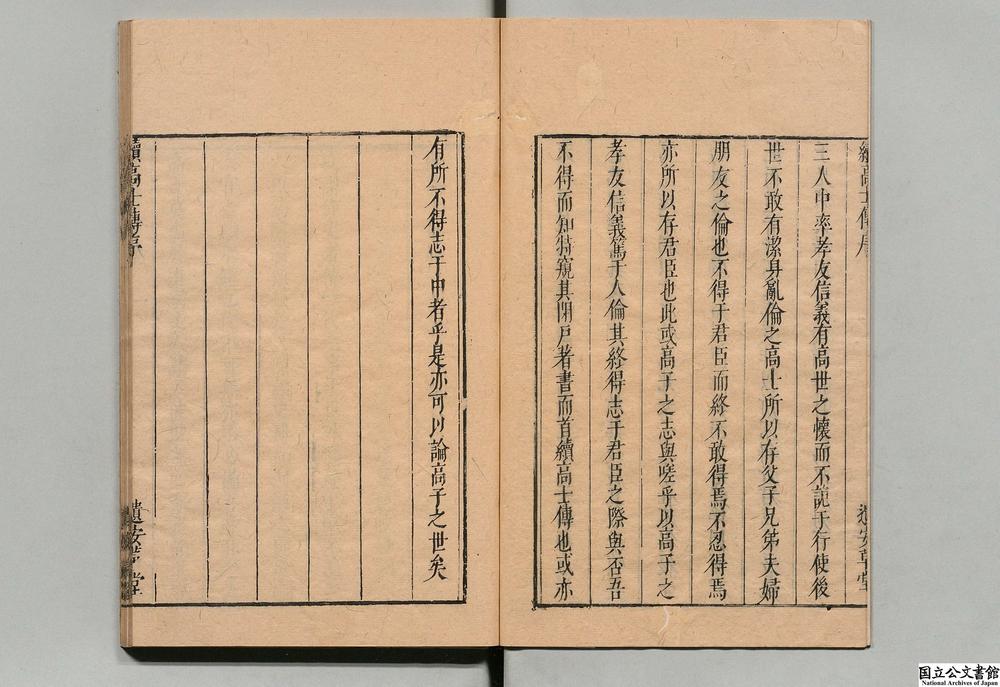 續高士傳序
遺安草堂
三人中率孝友信義有高世之懷而不詭于行使後
世不敢有潔身亂倫之高士所以存父子兄弟夫婦
朋友之倫也不得于君臣而終不敢得焉不忍得焉
亦所以存君臣也此或高子之志與嗟乎以高子之
孝友信義篤于人倫其終得志于君臣之際與否吾
不得而知特窺其閉戸著書而首續高士傳也或亦
有所不得志于中者乎是亦可以論高子之世矣
續高士傳序
遺安草堂
国立公文書館
National Archives of Japan